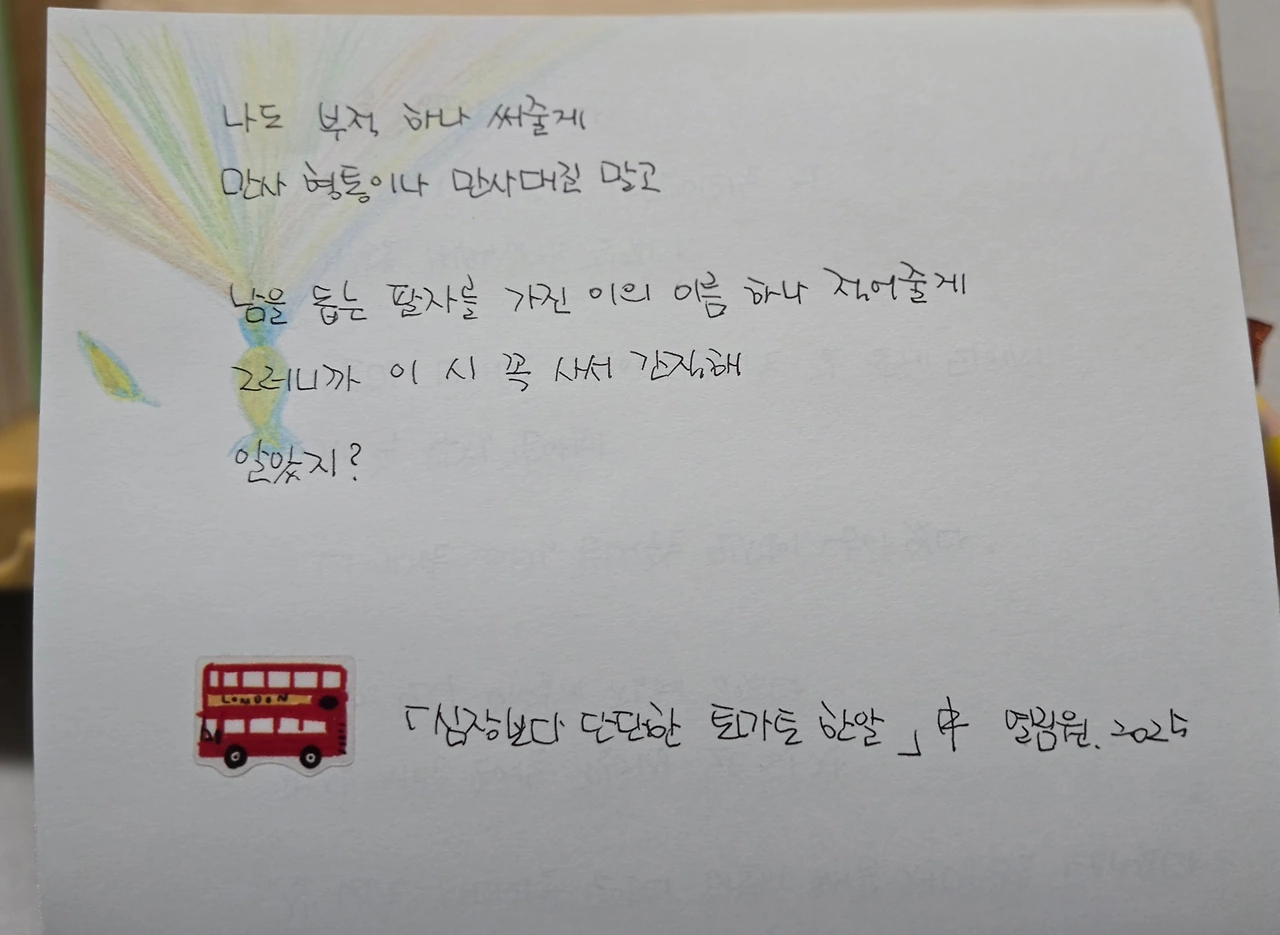 나도 부적 하나 써줄게
만사 형통이나 만사대길 말고
남을 돕는 팔자를 가진 이의 이름 하나 적어줄게
그러니까 이 시 꼭 사서 간직해
알았지?
LONDON
「심장보다 단단한 토마토 한알」 中 열림원. 2025